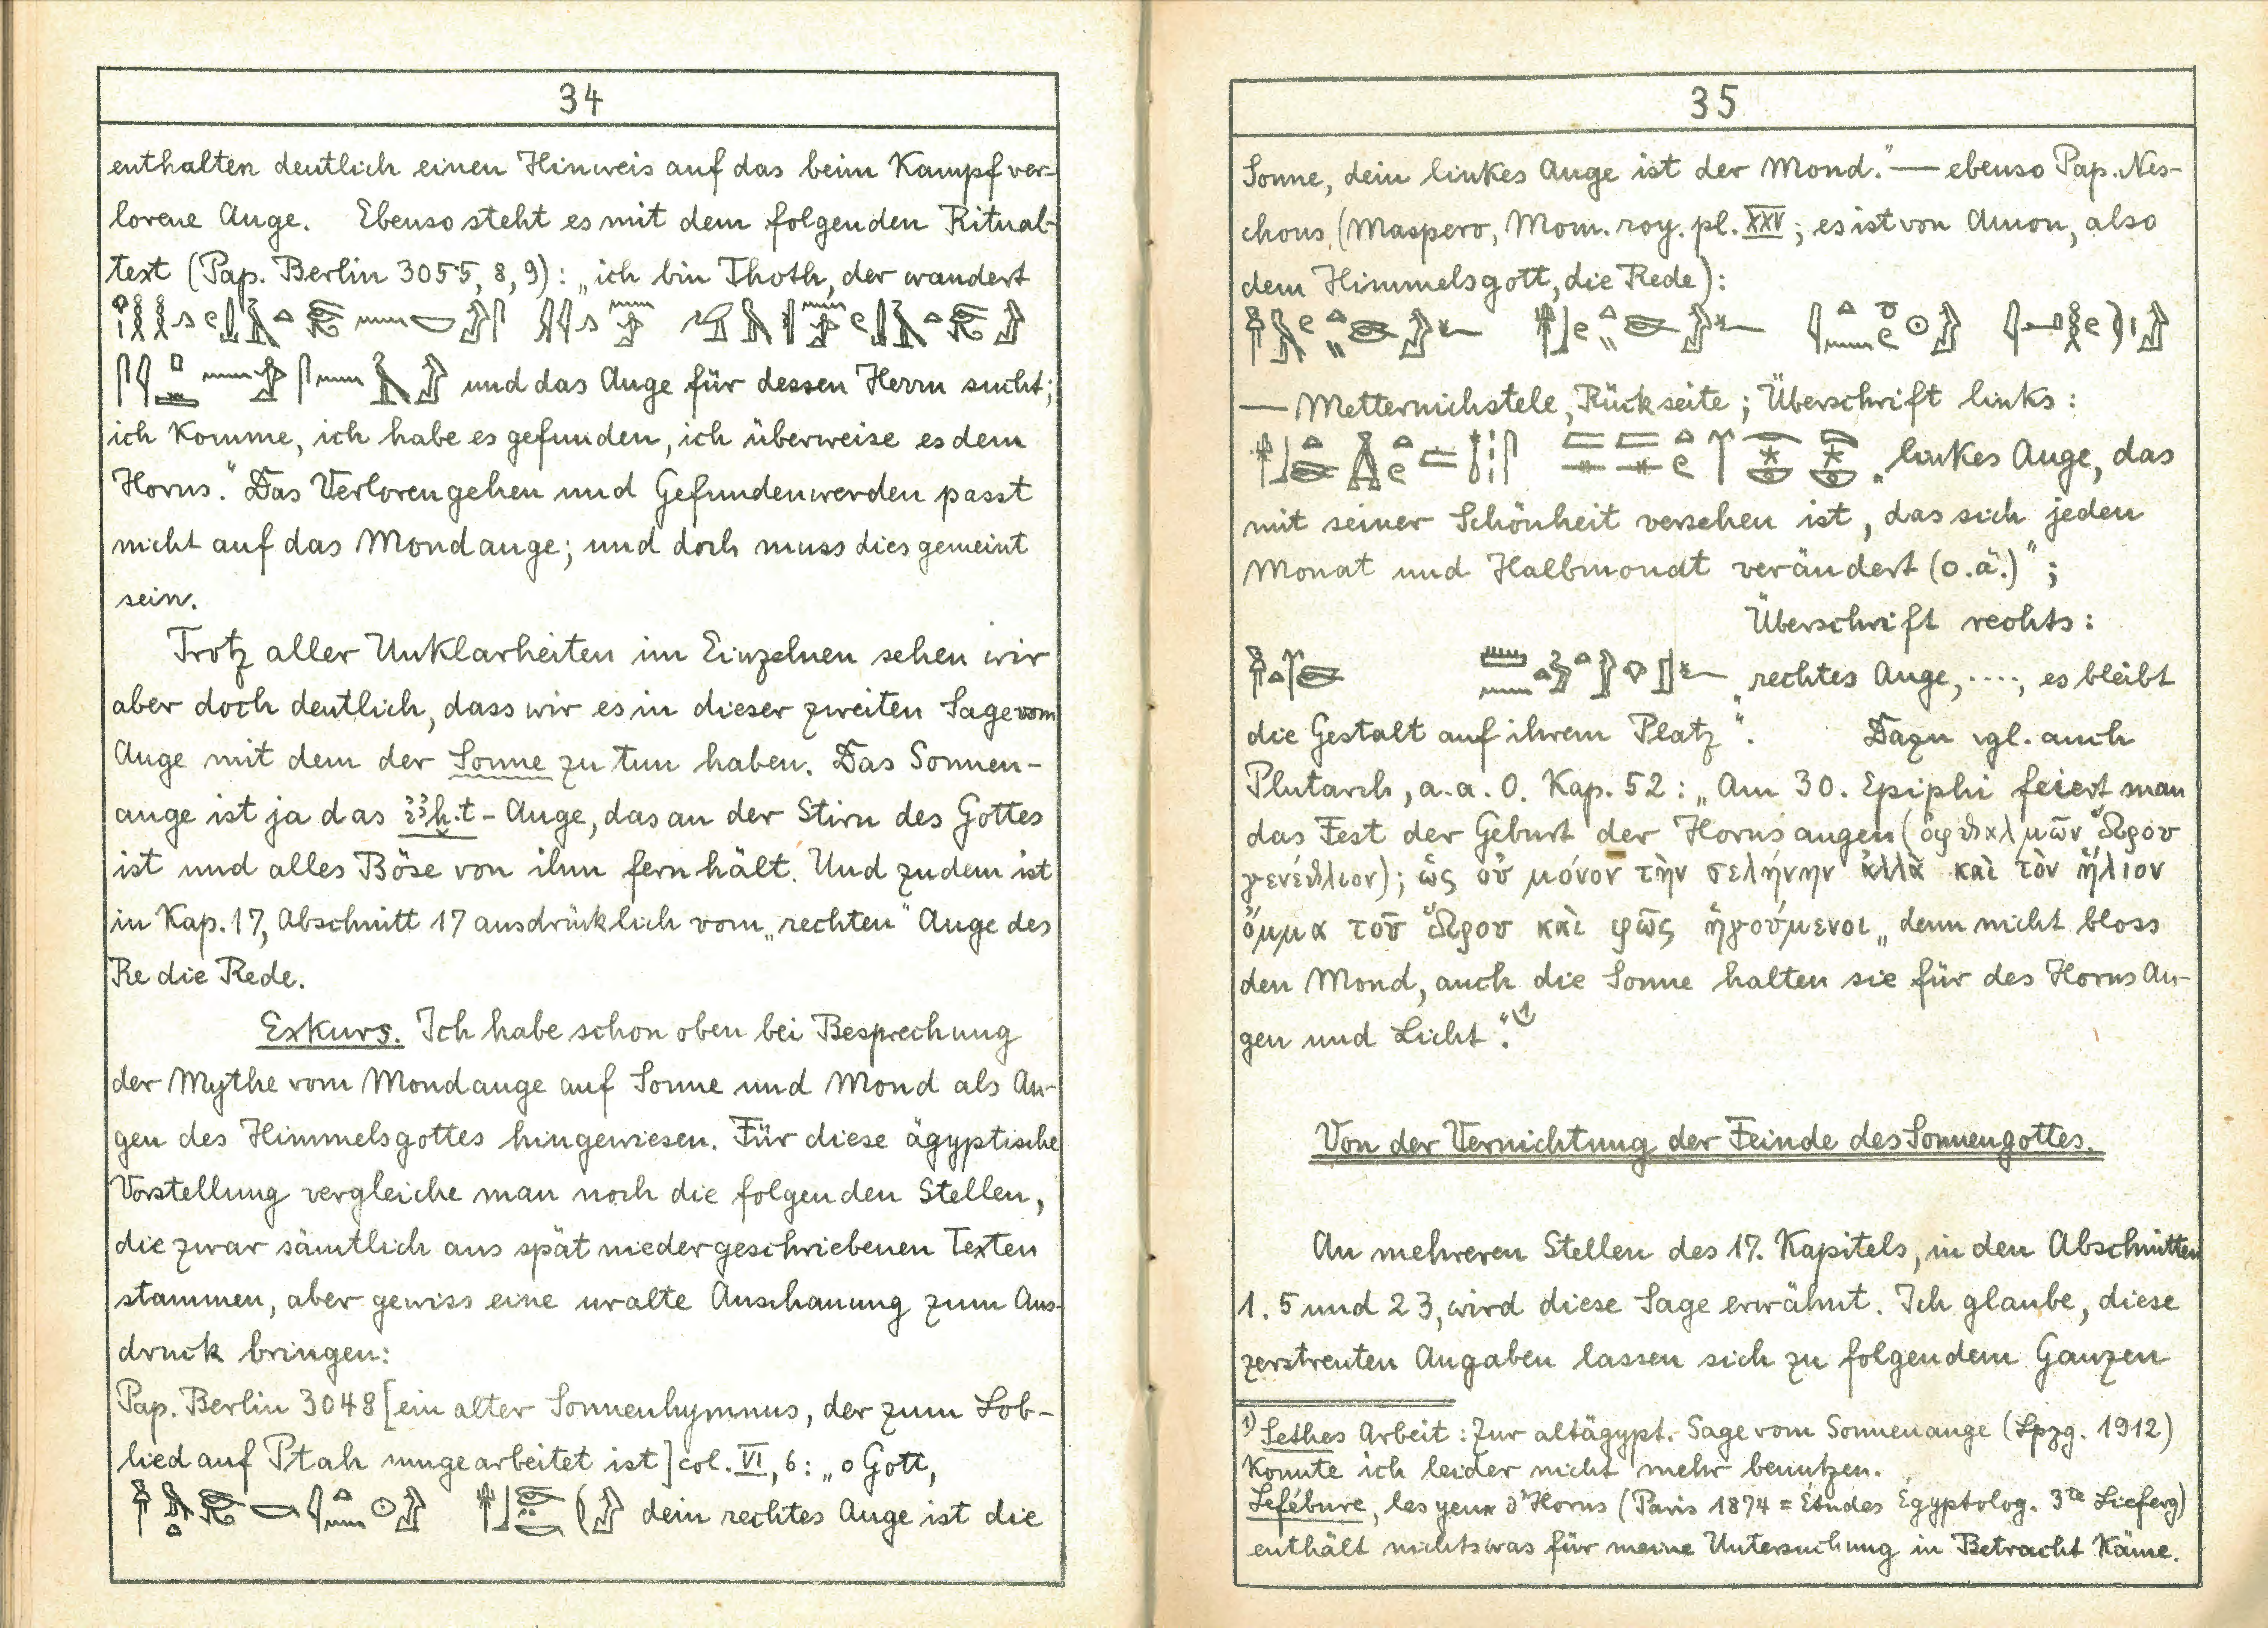 34
enthalten deutlich einen Hinweis auf das beim Kampf ver-
lorene Auge. Ebenso steht es mit dem folgenden Ritual-
text (Pap. Berlin 3055, 8, 9): „ich bin Thoth, der wandert
und das Auge für dessen Herrn sucht;
ich komme, ich habe es gefunden, ich überweise es dem
Horus." Das Verlorengehen und Gefundenwerden passt
nicht auf das Mondauge; und doch muss dies gemeint
sein.
Trotz aller Unklarheiten im Einzelnen sehen wir
aber doch deutlich, dass wir es in dieser zweiten Sage vom
Auge mit dem der Sonne zu tun haben. Das Sonnen-
auge ist ja das ꜣḫ.t - Auge, das an der Stirn des Gottes
ist und alles Böse von ihm fern hält. Und zudem ist
in Kap. 17, Abschnitt 17 ausdrücklich vom „rechten" Auge des
Re die Rede.
Exkurs. Ich habe schon oben bei Besprechung
der Mythe vom Mondauge auf Sonne und Mond als Au-
gen des Himmelsgottes hingewiesen. Für diese ägyptische
Vorstellung vergleiche man noch die folgenden Stellen,
die zwar sämtlich aus spät niedergeschriebenen Texten
stammen, aber gewiss eine uralte Anschauung zum Aus-
druck bringen:
Pap. Berlin 3048 [ein alter Sonnenhymnus, der zum Lob-
lied auf Ptah umgearbeitet ist] col. VI, 6: „o Gott,
dein rechtes Auge ist die
35
Sonne, dein linkes Auge ist der Mond." — ebenso Pap. Nes-
chons (Maspero, Mom. roy. pl. XXV; es ist von Amon, also
dem Himmelsgott, die Rede):
— Metternichstele, Rückseite; Überschrift links:
„linkes Auge, das
mit seiner Schönheit versehen ist, das sich jeden
Monat und Halbmondt verändert (o.ä.)";
Überschrift rechts:
„rechtes Auge, ...., es bleibt
die Gestalt auf ihrem Platz". Dazu vgl. auch
Plutarch, a. a. O. Kap. 52: „Am 30. Epiphi feiert man
das Fest der Geburt der Horusaugen (ὀφθαλμῶν Ὥρου
γενέθλιον); ὡς οὐ μόνον τὴν σελήνην ἀλλὰ καὶ τὸν ἥλιον
ὄμμα τοῦ Ὥρου καὶ φῶς ἡγούμενοι „denn nicht bloss
den Mond, auch die Sonne halten sie für des Horus Au-
gen und Licht".¹⁾
Von der Vernichtung der Feinde des Sonnengottes.
An mehreren Stellen des 17. Kapitels, in den Abschnitten
1. 5 und 23, wird diese Sage erwähnt. Ich glaube, diese
zerstreuten Angaben lassen sich zu folgendem Ganzen
¹⁾ Sethes Arbeit: Zur altägypt. Sage vom Sonnenauge (Lpzg. 1912)
konnte ich leider nicht mehr benutzen.
Lefébure, les yeux d'Horus (Paris 1874 = Études Égyptolog. 3te Lieferg)
enthält nichts was für meine Untersuchung in Betracht käme.